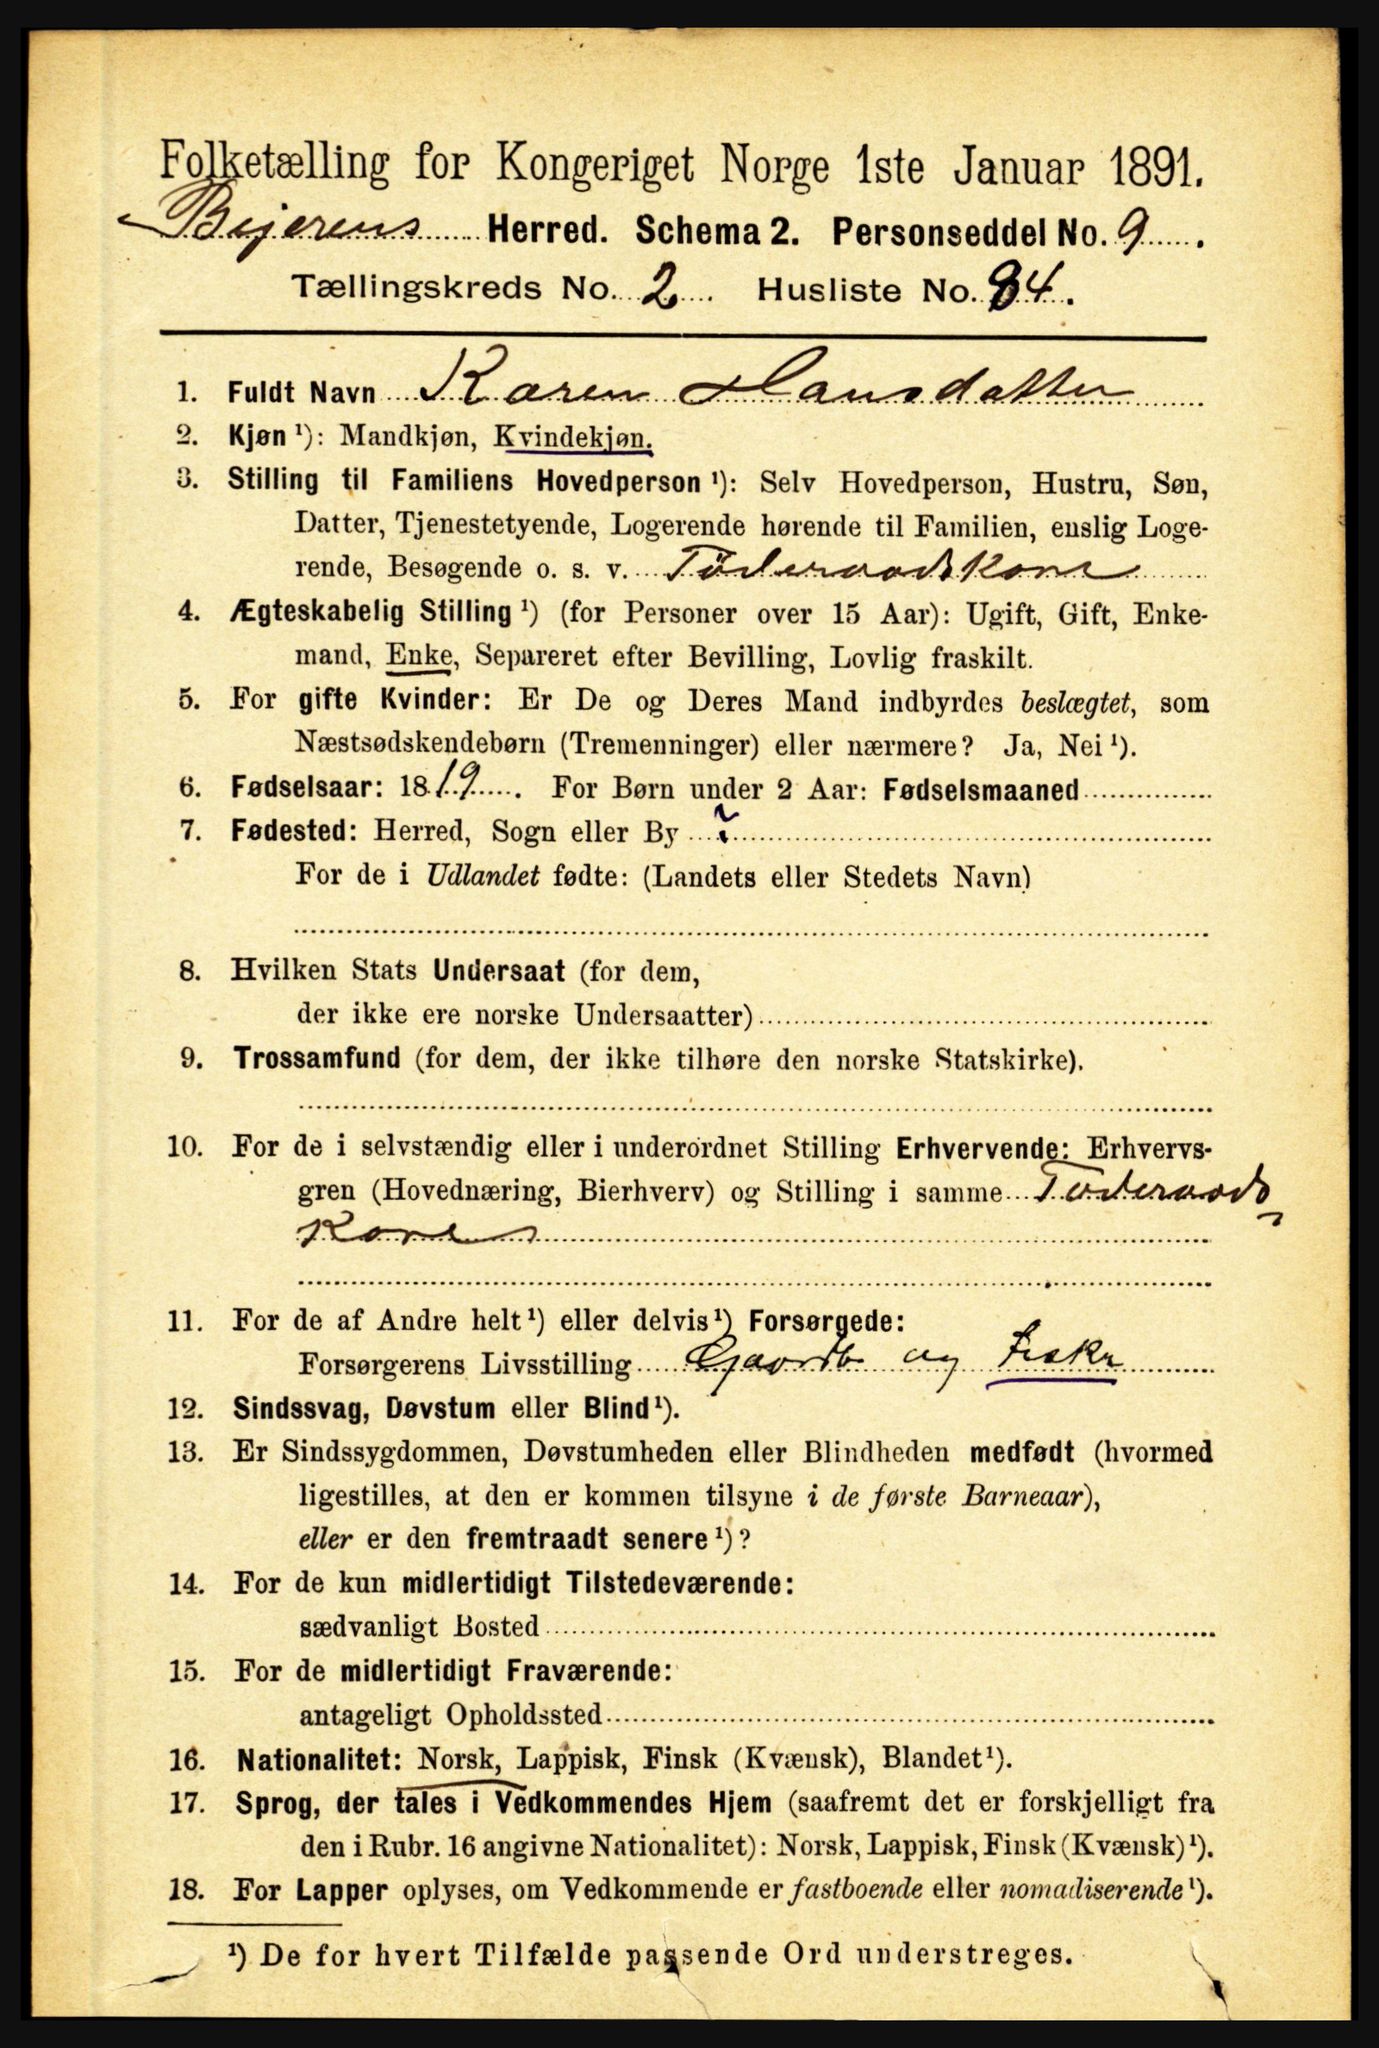 Folketælling for Kongeriget Norge 1ste Januar 1891.
Bejerens Herred. Schema 2. Personseddel No. 9.
Tællingskreds No. 2. Husliste No. 84.
1. Fuldt Navn Karen Hansdatter
2. Kjøn ¹): Mandkjøn, Kvindekjøn.
3. Stilling til Familiens Hovedperson ¹): Selv Hovedperson, Hustru, Søn,
Datter, Tjenestetyende, Logerende hørende til Familien, enslig Loge-
rende, Besøgende o. s. v. Föderaadskone
4. Ægteskabelig Stilling ¹) (for Personer over 15 Aar): Ugift, Gift, Enke-
mand, Enke, Separeret efter Bevilling, Lovlig fraskilt.
5. For gifte Kvinder: Er De og Deres Mand indbyrdes beslægtet, som
Næstsødskendebørn (Tremenninger) eller nærmere? Ja, Nei ¹).
6. Fødselsaar: 1819. For Børn under 2 Aar: Fødselsmaaned
7. Fødested: Herred, Sogn eller By
For de i Udlandet fødte: (Landets eller Stedets Navn)
8. Hvilken Stats Undersaat (for dem,
der ikke ere norske Undersaatter)
9. Trossamfund (for dem, der ikke tilhøre den norske Statskirke).
10. For de i selvstændig eller i underordnet Stilling Erhvervende: Erhvervs-
gren (Hovednæring, Bierhverv) og Stilling i samme Föderaads
Kone
11. For de af Andre helt ¹) eller delvis ¹) Forsørgede:
Forsørgerens Livsstilling Gaardb og Fisker
12. Sindssvag, Døvstum eller Blind ¹).
13. Er Sindssygdommen, Døvstumheden eller Blindheden medfødt (hvormed
ligestilles, at den er kommen tilsyne i de første Barneaar),
eller er den fremtraadt senere ¹)?
14. For de kun midlertidigt Tilstedeværende:
sædvanligt Bosted
15. For de midlertidigt Fraværende:
antageligt Opholdssted
16. Nationalitet: Norsk, Lappisk, Finsk (Kvænsk), Blandet ¹).
17. Sprog, der tales i Vedkommendes Hjem (saafremt det er forskjelligt fra
den i Rubr. 16 angivne Nationalitet): Norsk, Lappisk, Finsk (Kvænsk) ¹).
18. For Lapper oplyses, om Vedkommende er fastboende eller nomadiserende ¹).
¹) De for hvert Tilfælde passende Ord understreges.